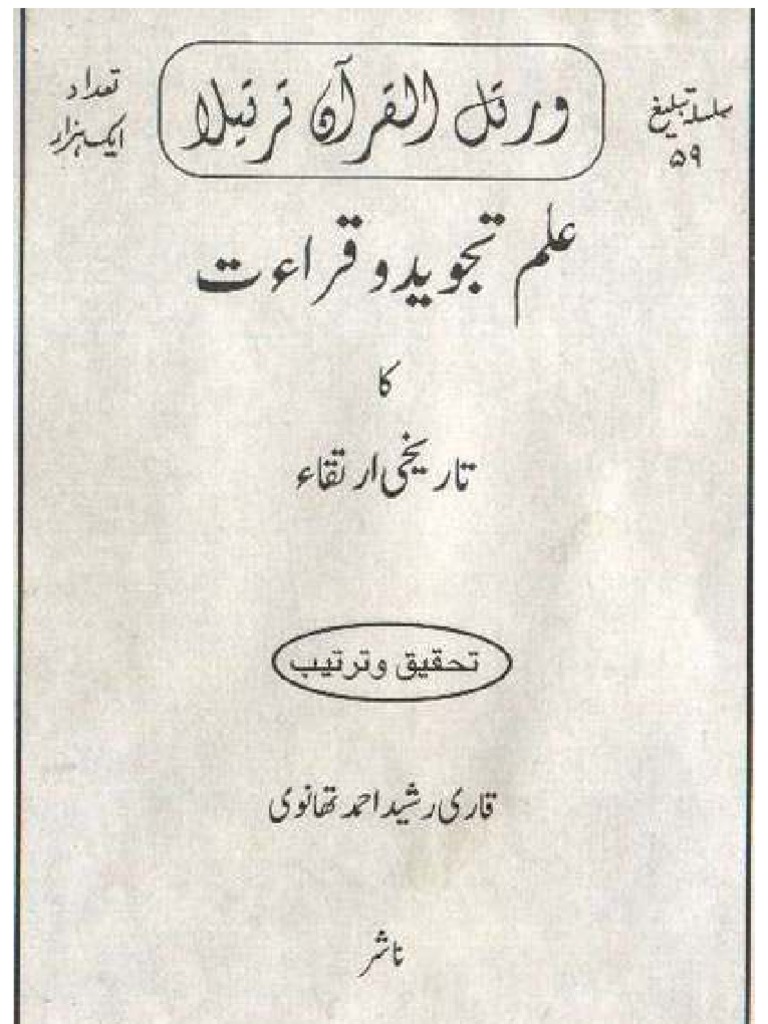 سلسلہ تبلیغ
۵۹
ورتل القرآن ترتیلا
تعداد
ایک ہزار
علم تجوید و قراءت
کا
تاریخی ارتقاء
تحقیق و ترتیب
قاری رشید احمد تھانوی
ناشر